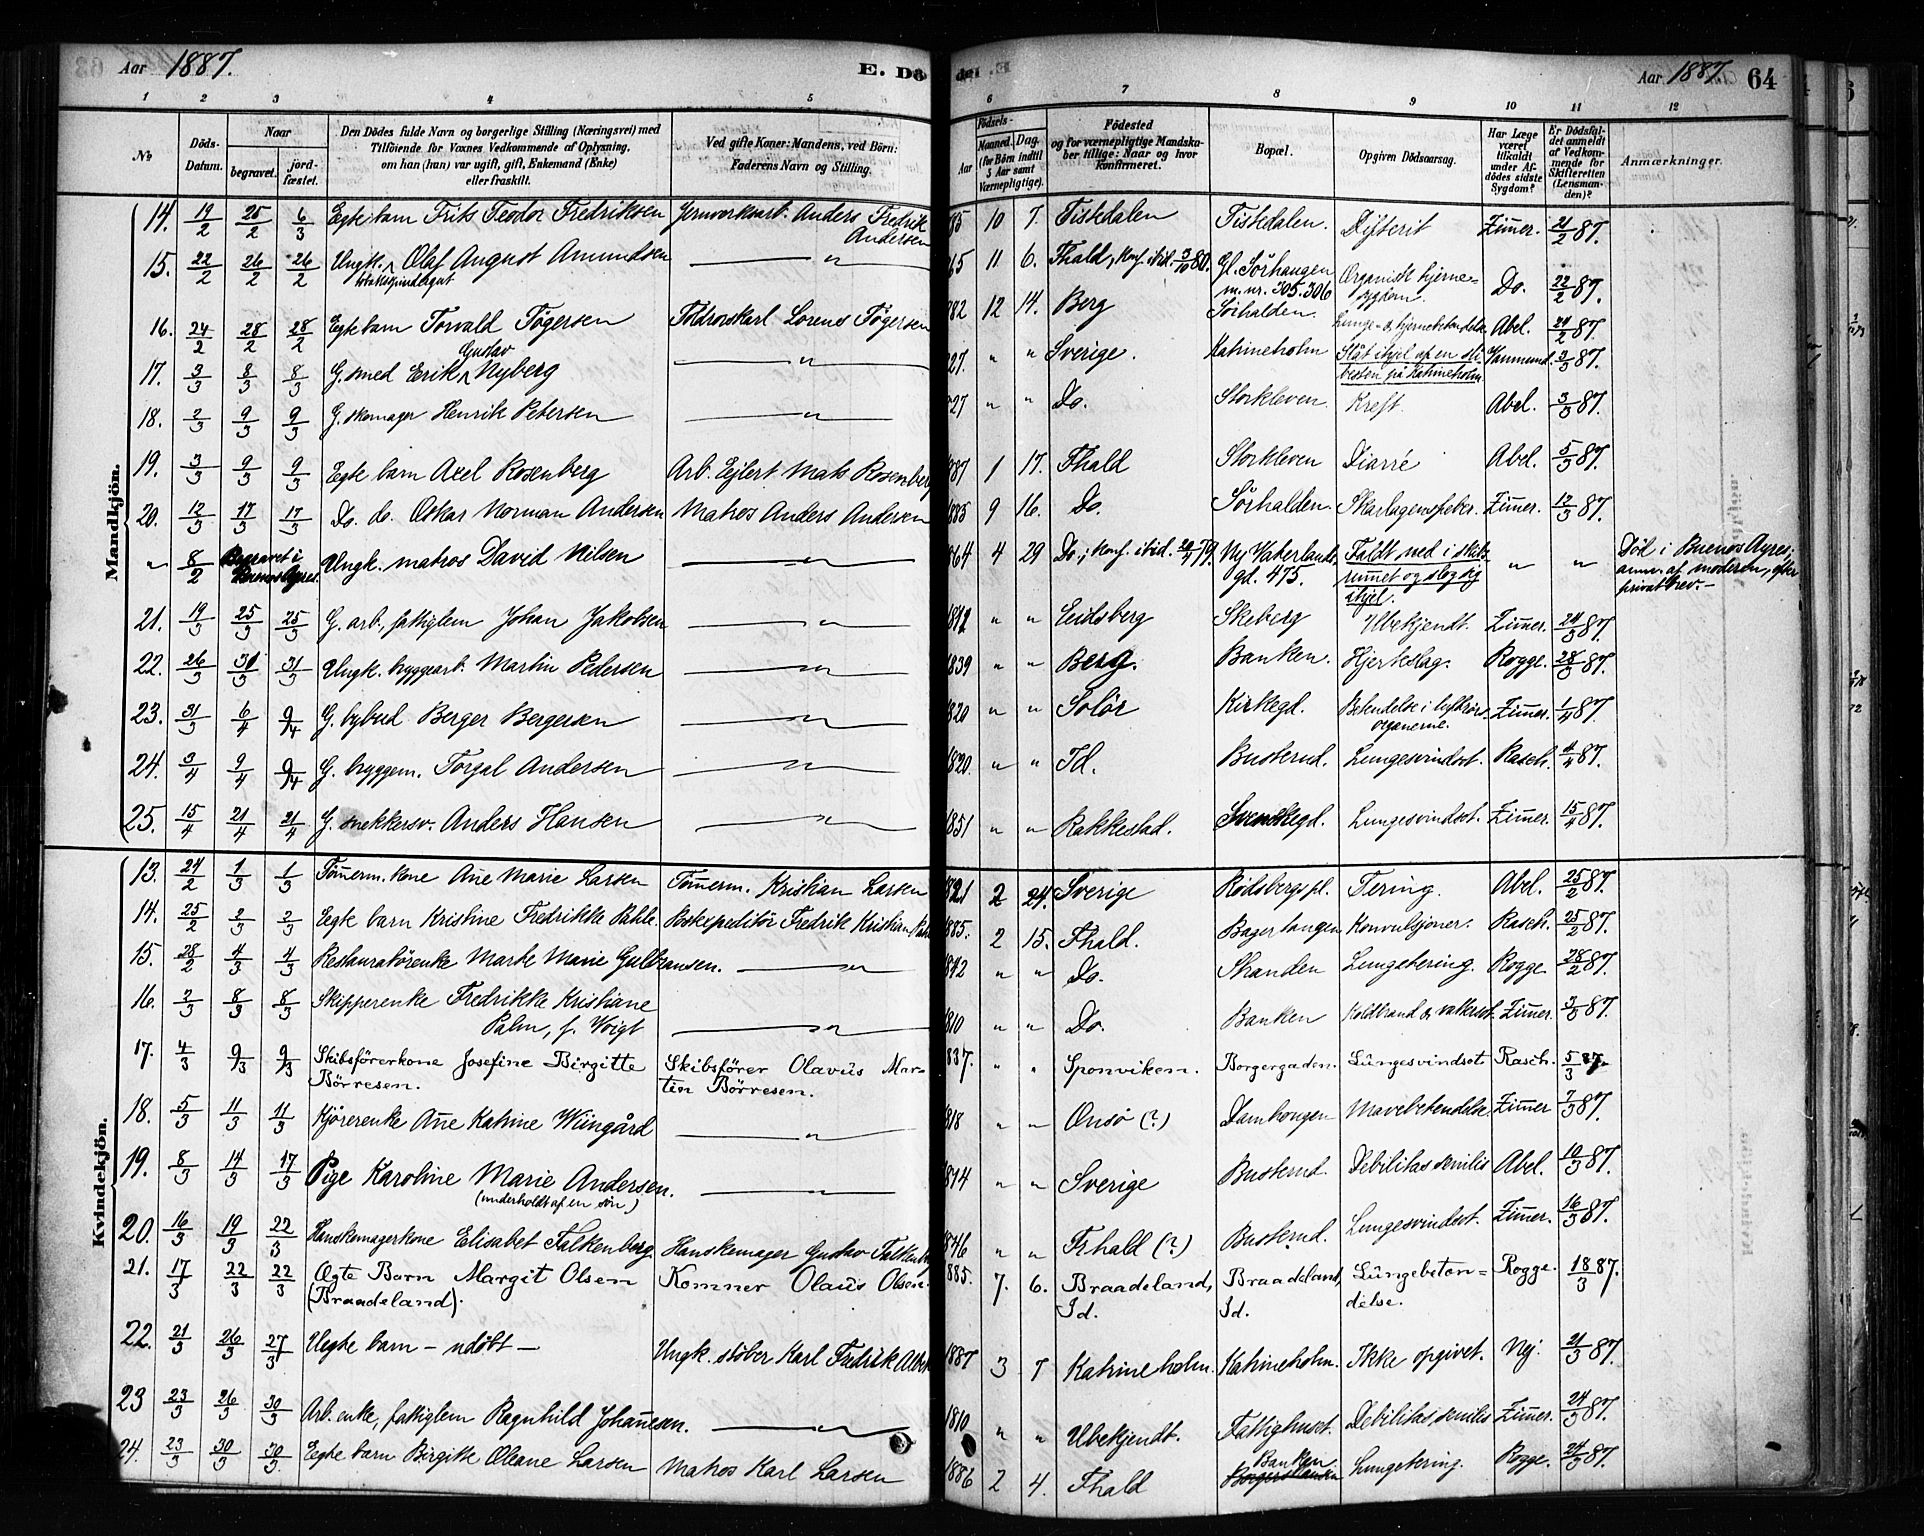 Aar 1887. E. Dö
Aar 1887. 64
1 2 3 4 5
6 7 8 9 10 11 12
No
Döds-Datum.
Naar
begravet.
jord-fæstet.
Den Dödes fulde Navn og borgerlige Stilling (Næringsvei) med
Tilföiende for Voxnes Vedkommende af Oplysning,
om han (hun) var ugift, gift, Enkemand (Enke)
eller fraskilt.
Ved gifte Koner: Mandens, ved Börn:
Faderens Navn og Stilling.
Födsels-
Aar
Maaned. Dag.
(for Börn indtil
5 Aar samt
Værnepligtige).
Födested
og for værnepligtige Mandska-
ber tillige: Naar og hvor
konfirmeret.
Bopæl.
Opgiven Dödsaarsag.
Har Læge
været
tilkaldt
under Af-
dödes sidste
Sygdom?
Er Dödsfal-
det anmeldt
af Vedkom-
mende for
Skifteretten
(Lensman-
den)?
Anmærkninger.
Mandkjön.
14. 19/2 25/2 6/3 Egte barn Frits Teodor Fredriksen Jernverksarb. Anders Fredrik Andersen 85 10 7. Tistedalen Tistedalen. Difterit Zimmer. 21/2 87.
15. 22/2 26/2 26/2 Ungk. tobakspindergut Olaf August Amundsen " 65 11 6. Fhald, konf. ibid. 3/10 80. Gl. Sörhaugen m. nr. 305. 306 Organisk hjerne-sygdom. Do. 22/2 87.
16. 24/2 28/2 28/2 Egte barn Torvald Tögersen Toldrorskarl Lorens Tögersen 882 12 14. Berg Sörhalden. Lunge- & hjernebetændelse Abel. 24/2 87.
17. 3/3 8/3 8/3 G. smed Erik Gustav Nyberg " 27. " " Sverige. Katrineholm Slåt ihjel af en sli-besten på Katrineholm 3/3 87.
18. 2/3 9/3 9/3 G. skomager Henrik Petersen " 27 " " Do. Storkleven. Kreft. Abel. 3/3 87.
19. 3/3 9/3 9/3 Egte barn Axel Rosenberg Arb. Ejlert Mats Rosenberg 887 1 17. Fhald Storkleven Diarré Abel. 5/3 87.
20. 12/3 17/3 17/3 Do. do. Oskar Norman Andersen Matros Anders Andersen 883 9 16. Do. Sörhalden. Skarlagensfeber. Zimmer. 12/3 87.
" 8/2 Begravet i Buenos Ayres. Ungk. matros David Nilsen " 864 4 29 Do.; konf. ibid. 20/4 79. Ny Vaterlands-gd. 475. Faldt ned i skibs-rummet og slog sig ihjel. " " Död i Buenos Ayres; anm. af moderen, efter privatbrev.-
21. 19/3 25/3 25/3 G. arb., fattiglem Johan Jakobsen " 1812 " " Eidsberg Skeberg Ubekjendt. Zimmer. 24/3 87.
22. 26/3 31/3 31/3 Ungk. bryggearb. Martin Pedersen " 839 " " Berg. Banken. Hjerteslag. Rogge. 28/3 87.
23. 31/3 6/4 9/4 G. bybud Berger Bergersen " 820 " " Solör Kirkegd. Betendelse i luftrörs-organerne. Zimmer. 1/4 87.
24. 3/4 9/4 9/4 G. bryggem. Torgal Andersen " 1820. " " Id. Busterud. Lungesvindsot. Rasch. 4/4 87.
25. 15/4 21/4 21/4 G. snekkersv. Anders Hansen " 1851 " " Rakkestad. Svenskegd. Lungesvindsot. Zimmer. 15/4 87.
Kvindekjön.
13. 24/2 1/3 1/3 Tömmerm. kone Ane Marie Larsen Tömmerm. Kristian Larsen 1821 2 24. Sverige Rödsbergspl. Tering. Abel. 25/2 87.
14. 25/2 2/3 2/3 Egte barn Kristine Fredrikke Pahle. Postexpeditör Fredrik Kristian 885. 2 15. Fhald. Konvulsjoner. Rasch. 25/2 87.
15. 28/2 4/3 4/3 Restauratörenke Marte Marie Gulbransen. " 1812 " " Do. Skanden Lungetering. Rogge 28/2 87.
16. 2/3 8/3 8/3 Skipperenke Fredrikke Kristiane Palm, f. Voigt " 810 " " Do. Banken Koldbrand & vattersot. Zimmer. 3/3 87.
17. 4/3 9/3 9/3 Skibsförerkone Josefine Birgitte Börresen. Skibsförer Olavus Mar-tin Börresen. 837. " " Sponviken. Borgergaden. Lungesvindsot Rasch. 5/3 87.
18. 5/3 11/3 11/3 Kjörerenke Ane Katrine Wiingård " 818 " " Onsö (?) Damhaugen Mavebetendelse. Zimmer 7/3 87.
19. 8/3 14/3 17/3 Pige Karoline Marie Andersen. (underholdt af en sön) " 1814 " " Sverige Busterud. Debilitas senilis Abel. 10/3 87.
20. 16/3 19/3 22/3 Hanskemagerkone Elisabet Falkenberg. Hanskemager Gustav Falkenberg 1846 " " Frhald (?) Busterud. Lungesvindsot. Zimmer. 16/3 87.
21. 17/3 22/3 22/3 Ægte Barn Margit Olsen (Braadeland). Komner Olaus Olsen. 885. 7. 6. Braadeland, Id. Braadeland, Id. Lungebeten=delse. Rogge. 18/3 87.
22. 21/3 26/3 27/3 Uegte barn - udöbt - Ungk. stöber Karl Fredrik 1887 3 7 Katrineholm. Katrineholm. Ikke opgivet. Nej. 21/3 87.
23 23/3 26/3 30/3 Arb. enke, fattiglem Ragnhild Johannesen. " 1810 " " Ubekjendt. Fattighuset. Debilitas senilis Zimmer. 24/3 87.
24. 23/3 30/3 30/3 Egte barn Birgitte Oleane Larsen Matros Karl Larsen 1886 2 4. Fhald Banken Lungetering. Rogge. 24/3 87.